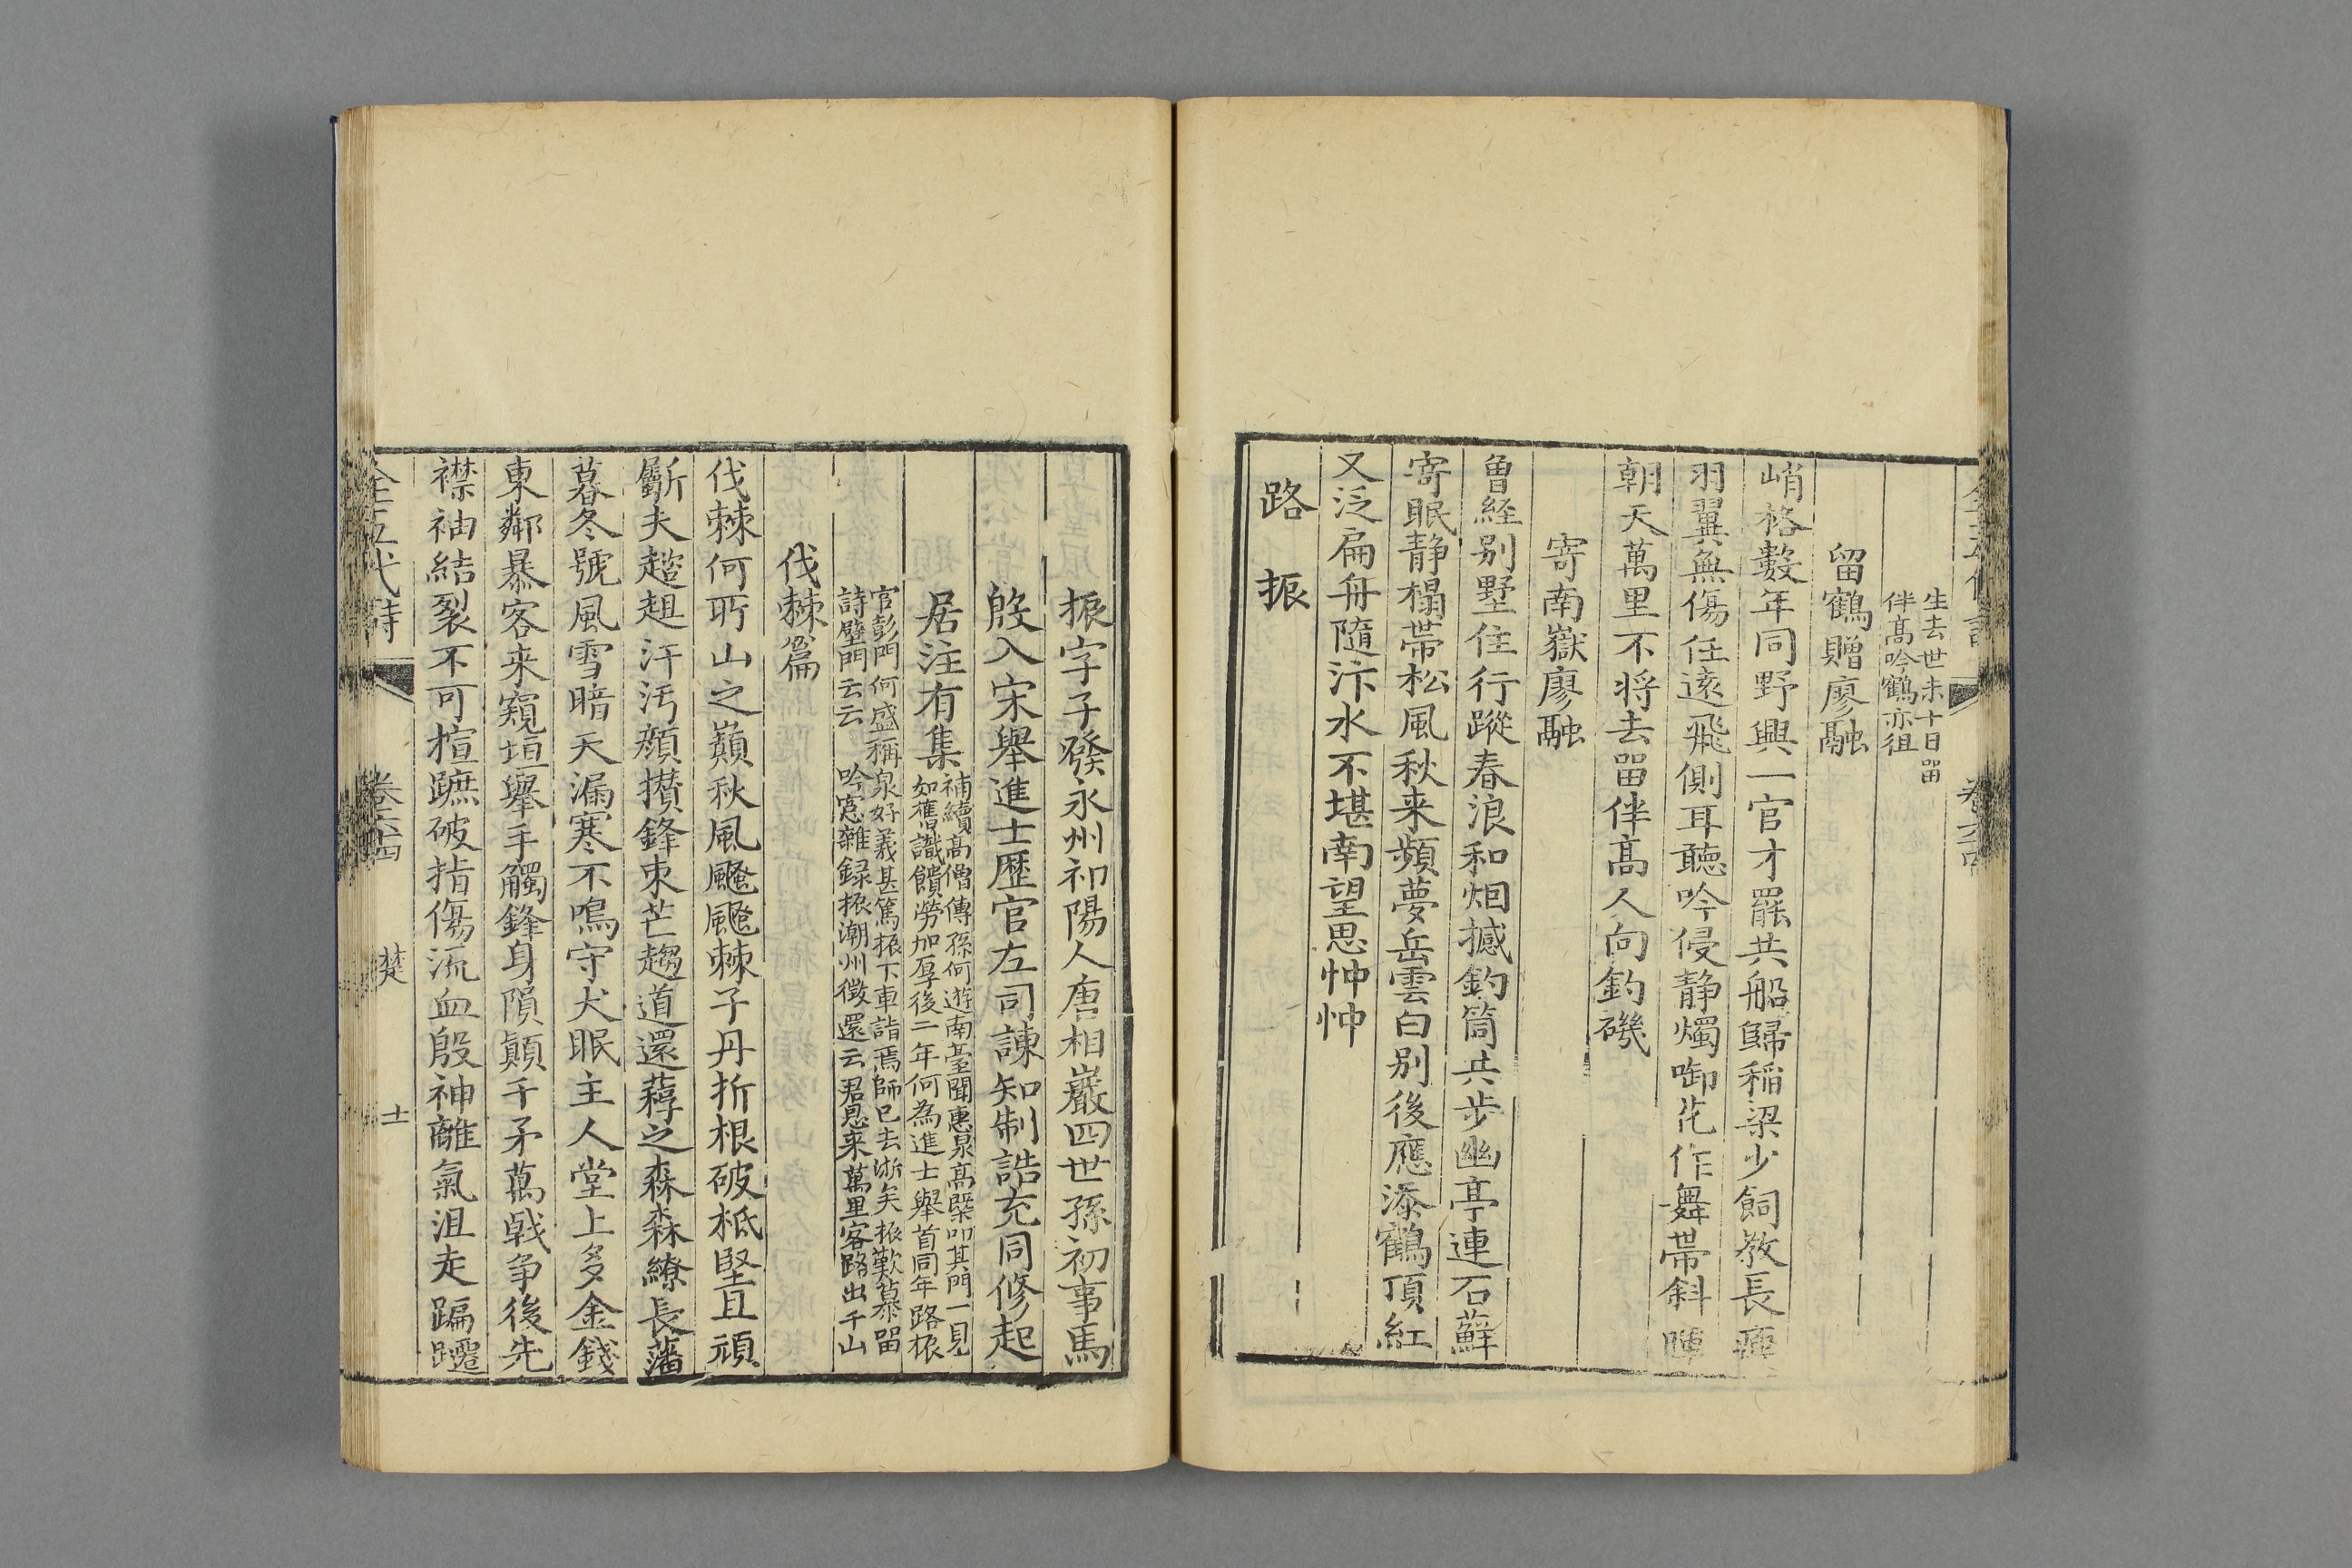 生去世未十日畱
伴髙吟鶴亦徂
留鶴贈廖融
峭格數年同野興一官才罷共船歸稲梁少飼教長瘦
羽翼無傷任逺飛側耳聽吟侵静燭啣花作舞帯斜暉
朝天萬里不将去畱伴髙人向釣磯
寄南嶽廖融
曾経别墅住行蹤春浪和烟撼釣筒共步幽亭連石蘚
寄眠静榻帯松風秋来頻夢岳雲白别後應添鶴頂紅
又泛扁舟隨汴水不堪南望思忡忡
路振
振字子發永州祁陽人唐相巖四世孫初事馬
殷入宋舉進士歴官左司諫知制誥充同修起
居注有集
補續髙僧傳孫何遊南臺聞惠泉髙槩叩其門一見
如舊識饋勞加厚後二年何為進士舉首同年路振
官彭門何盛稱泉好義甚篤振下車詣焉師已去浙矣振歎慕畱
詩壁門云云 吟窓雜録振潮州徴還云君恩来萬里客路出千山
伐棘篇
伐棘何所山之巔秋風飈飈棘子丹折根破柢堅且頑
斸夫趦趄汗汚顔攢鋒朿芒趨道還蓴之森森繚長藩
暮冬號風雪暗天漏寒不鳴守犬眠主人堂上多金錢
東鄰暴客来窺垣舉手觸鋒身隕顛千矛萬戟争後先
襟袖結裂不可揎蹠破指傷流血殷神離氣沮走蹁躚
全五代詩 卷六十四 楚 十一